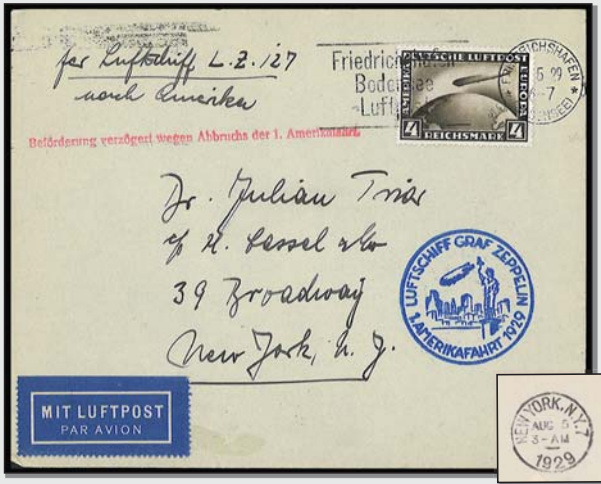 per Luftschiff L.Z. 127
nach Amerika
Friedrichshafen
Bodensee
Luft
DEUTSCHE LUFTPOST
AMERIKA
EUROPA
4 REICHSMARK 4
Beförderung verzögert wegen Abbruchs der 1. Amerikafahrt.
Dr. Julian
c/o H. Cassel & Co
39 Broadway
New York, N. Y.
LUFTSCHIFF GRAF ZEPPELIN
1. AMERIKAFAHRT 1929
MIT LUFTPOST
PAR AVION
NEW YORK, N.Y. 7
AUG 5
3-AM
1929